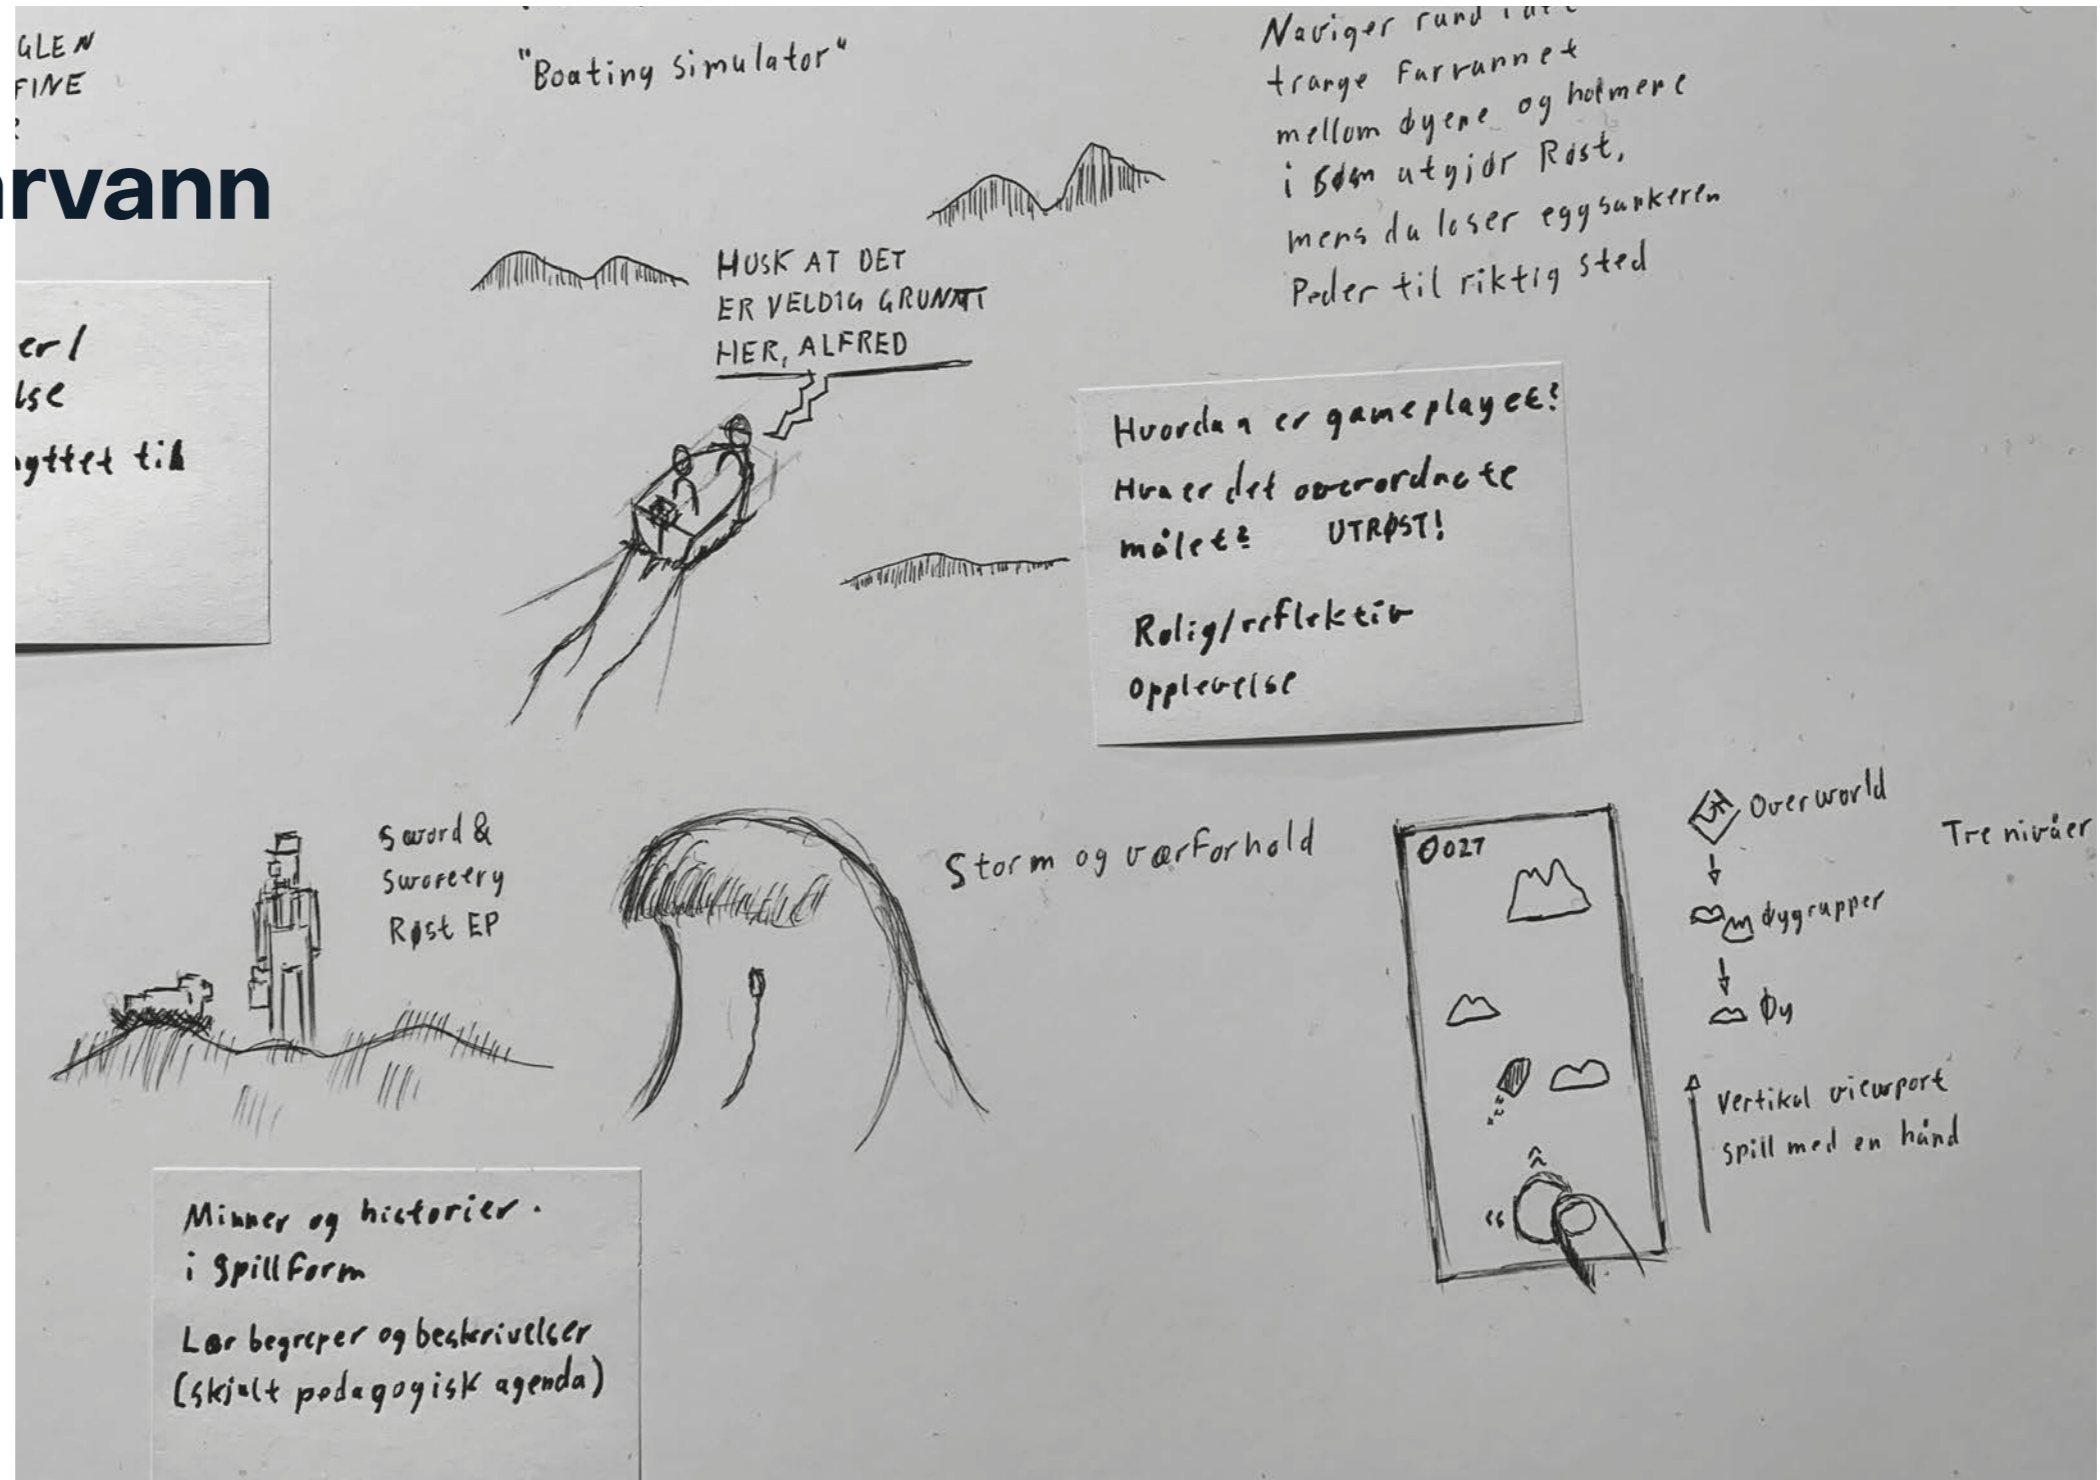 GLEN
FINE
arvann
er/
lse
yttet til
"Boating simulator"
Naviger rund i det
trange farvannet
mellom øyene og holmene
i som utgjør Røst,
mens du loser eggsankeren
Peder til riktig sted
HUSK AT DET
ER VELDIG GRUNT
HER, ALFRED
Hvordan er gameplayet?
Hva er det overordnete
målet? UTRØST!
Rolig/reflektiv
opplevelse
Sword &
Sworcery
Røst EP
Storm og værforhold
0027
Overworld
Tre nivåer
Øygrupper
Øy
Vertikal viewport
spill med en hånd
Minner og historier.
i spillform
Lær begreper og beskrivelser
(skjult pedagogisk agenda)